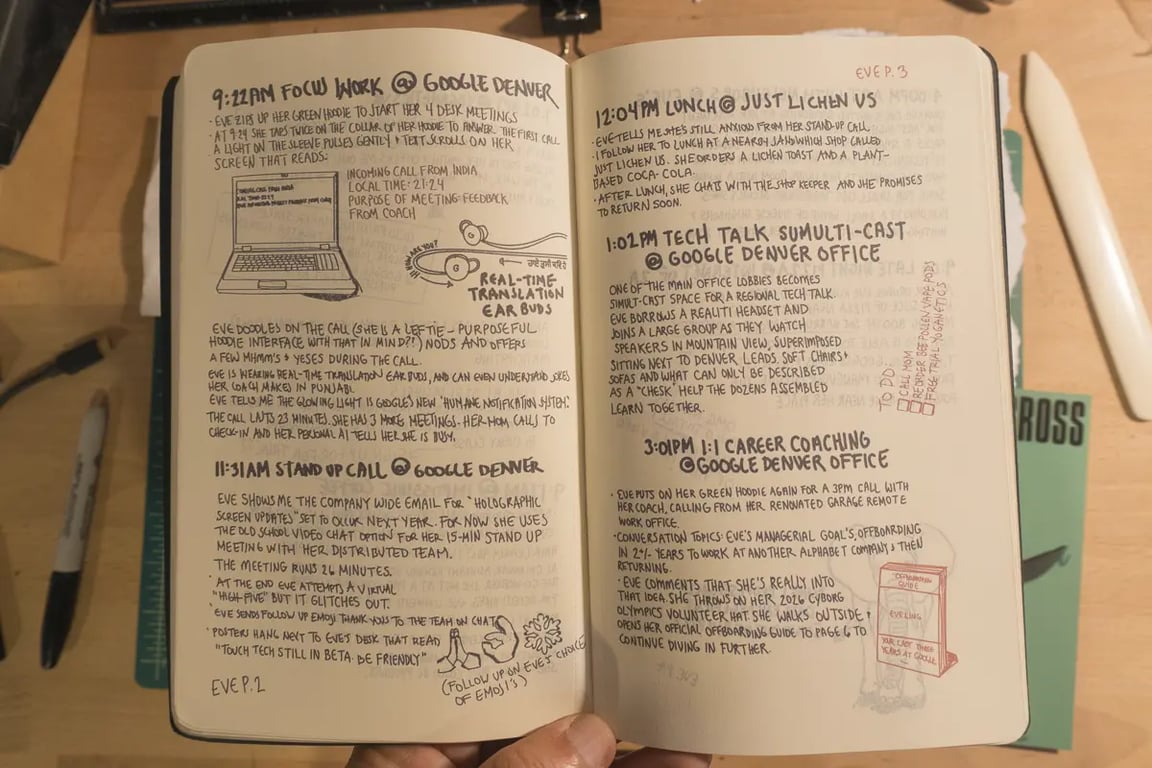 9:22AM FOCUS WORK @ GOOGLE DENVER
· EVE ZIPS UP HER GREEN HOODIE TO START HER 4 DESK MEETINGS
· AT 9:24 SHE TAPS TWICE ON THE COLLAR OF HER HOODIE TO ANSWER THE FIRST CALL
A LIGHT ON THE SLEEVE PULSES GENTLY + TEXT SCROLLS ON HER
SCREEN THAT READS:
INCOMING CALL FROM INDIA
LOCAL TIME: 21:24
PURPOSE OF MEETING: FEEDBACK
FROM COACH
HOW ARE YOU?
G
G
REAL-TIME
TRANSLATION
EAR BUDS
EVE DOODLES ON THE CALL (SHE IS A LEFTIE - PURPOSEFUL
HOODIE INTERFACE WITH THAT IN MIND?!) NODS AND OFFERS
A FEW MHMM'S + YESES DURING THE CALL.
EVE IS WEARING REAL-TIME TRANSLATION EAR BUDS, AND CAN EVEN UNDERSTAND JOKES
HER COACH MAKES IN PUNJABI.
EVE TELLS ME THE GLOWING LIGHT IS GOOGLE'S NEW "HUMANE NOTIFICATION SYSTEM."
THE CALL LASTS 23 MINUTES. SHE HAS 3 MORE MEETINGS. HER MOM CALLS TO
CHECK-IN AND HER PERSONAL AI TELLS HER SHE IS BUSY.
11:31AM STAND UP CALL @ GOOGLE DENVER
EVE SHOWS ME THE COMPANY WIDE EMAIL FOR "HOLOGRAPHIC
SCREEN UPDATES" SET TO OCCUR NEXT YEAR. FOR NOW SHE USES
THE OLD SCHOOL VIDEO CHAT OPTION FOR HER 15-MIN STAND UP
MEETING WITH HER DISTRIBUTED TEAM.
THE MEETING RUNS 26 MINUTES.
· AT THE END EVE ATTEMPTS A VIRTUAL
"HIGH-FIVE" BUT IT GLITCHES OUT.
· EVE SENDS FOLLOW UP EMOJI THANK YOUS TO THE TEAM ON CHAT
· POSTERS HANG NEXT TO EVE'S DESK THAT READ
"TOUCH TECH STILL IN BETA. BE FRIENDLY"
(FOLLOW UP ON EVE'S CHOICE
OF EMOJI'S)
EVE P. 2
EVE P. 3
12:04PM LUNCH @ JUST LICHEN US
· EVE TELLS ME SHE'S STILL ANXIOUS FROM HER STAND-UP CALL
· I FOLLOW HER TO LUNCH AT A NEARBY SANDWICH SHOP CALLED
JUST LICHEN US. SHE ORDERS A LICHEN TOAST AND A PLANT-
BASED COCA-COLA.
· AFTER LUNCH, SHE CHATS WITH THE SHOP KEEPER AND SHE PROMISES
TO RETURN SOON.
1:02PM TECH TALK SUMULTI-CAST
@ GOOGLE DENVER OFFICE
ONE OF THE MAIN OFFICE LOBBIES BECOMES
SIMULT-CAST SPACE FOR A REGIONAL TECH TALK.
EVE BORROWS A REALITI HEADSET AND
JOINS A LARGE GROUP AS THEY WATCH
SPEAKERS IN MOUNTAIN VIEW, SUPERIMPOSED
SITTING NEXT TO DENVER LEADS. SOFT CHAIRS +
SOFAS AND WHAT CAN ONLY BE DESCRIBED
AS A "CHESK" HELP THE DOZENS ASSEMBLED
LEARN TOGETHER.
TO DO:
CALL MOM
REORDER BEE POLLEN VAPE PODS
FREE TRIAL YOGANETICS
3:01PM 1:1 CAREER COACHING
@ GOOGLE DENVER OFFICE
· EVE PUTS ON HER GREEN HOODIE AGAIN FOR A 3PM CALL WITH
HER COACH, CALLING FROM HER RENOVATED GARAGE REMOTE
WORK OFFICE.
· CONVERSATION TOPICS: EVE'S MANAGERIAL GOALS, OFFBOARDING
IN 2+ YEARS TO WORK AT ANOTHER ALPHABET COMPANY + THEN
RETURNING.
· EVE COMMENTS THAT SHE'S REALLY INTO
THAT IDEA. SHE THROWS ON HER 2026 CYBORG
OLYMPICS VOLUNTEER HAT. SHE WALKS OUTSIDE +
OPENS HER OFFICIAL OFFBOARDING GUIDE TO PAGE 6 TO
CONTINUE DIVING IN FURTHER.
OFFBOARDING
GUIDE
EVE LING
YOUR LAST THREE
YEARS AT GOOGLE
ROSS